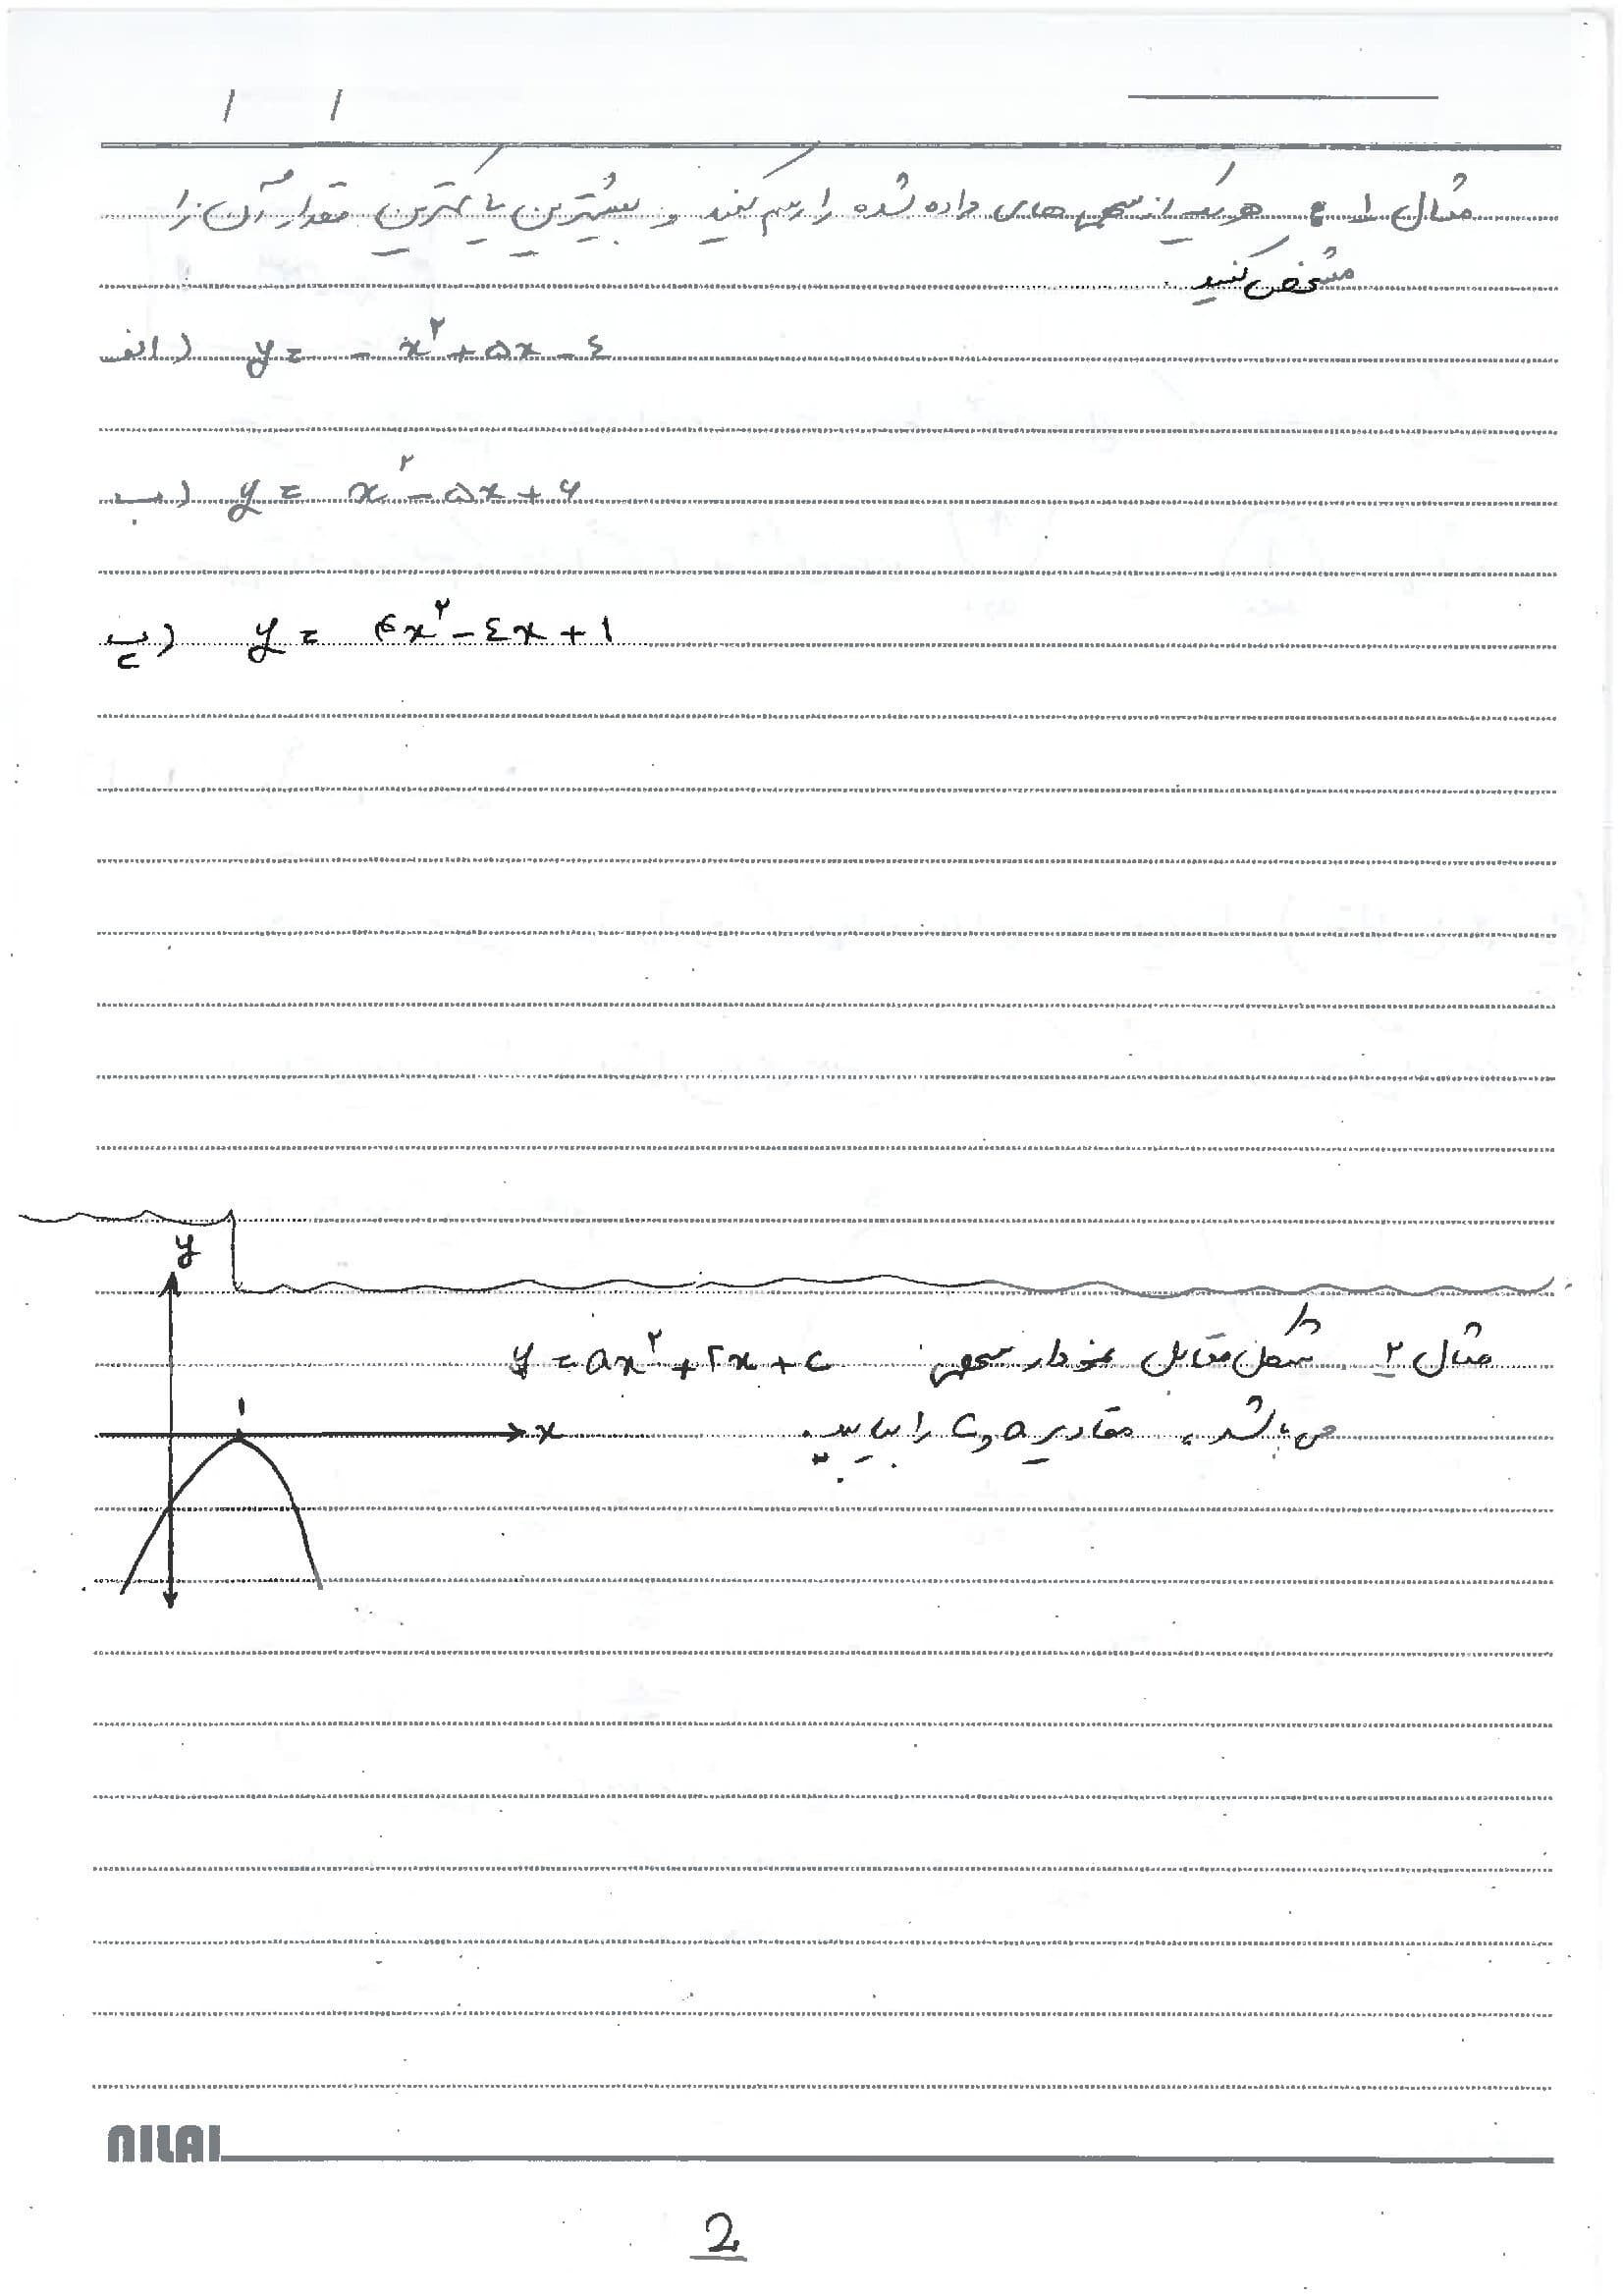 مثال ۱: هر یک از سهمی های داده شده را رسم کنید و بیشترین یا کمترین مقدار آن را
مشخص کنید.
الف) y = - x² + ۵x - ۴
ب) y = x² - ۵x + ۶
پ) y = ۴x² - ۴x + ۱
y
مثال ۲ شکل مقابل نمودار سهمی y = ax² + ۲x + c
۱
x
می باشد، مقادیر a و c را بیابید.
NILAI
2